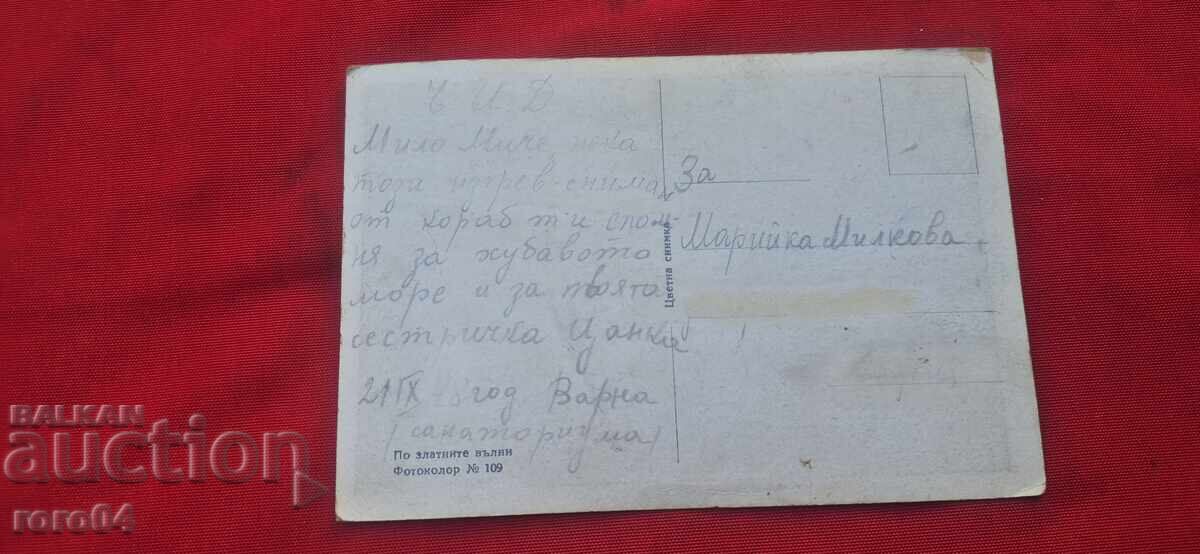 Ч И Д
Мило Миче нека
този изгрев-снима
от кораб ти спом-
ня за хубавото
море и за твоята
сестричка Цанка
21 IX год Варна
(санаториума)
По златните вълни
Фотоколор № 109
Цветна снимка
За
Марийка Милкова
BALKAN
auction
roro64